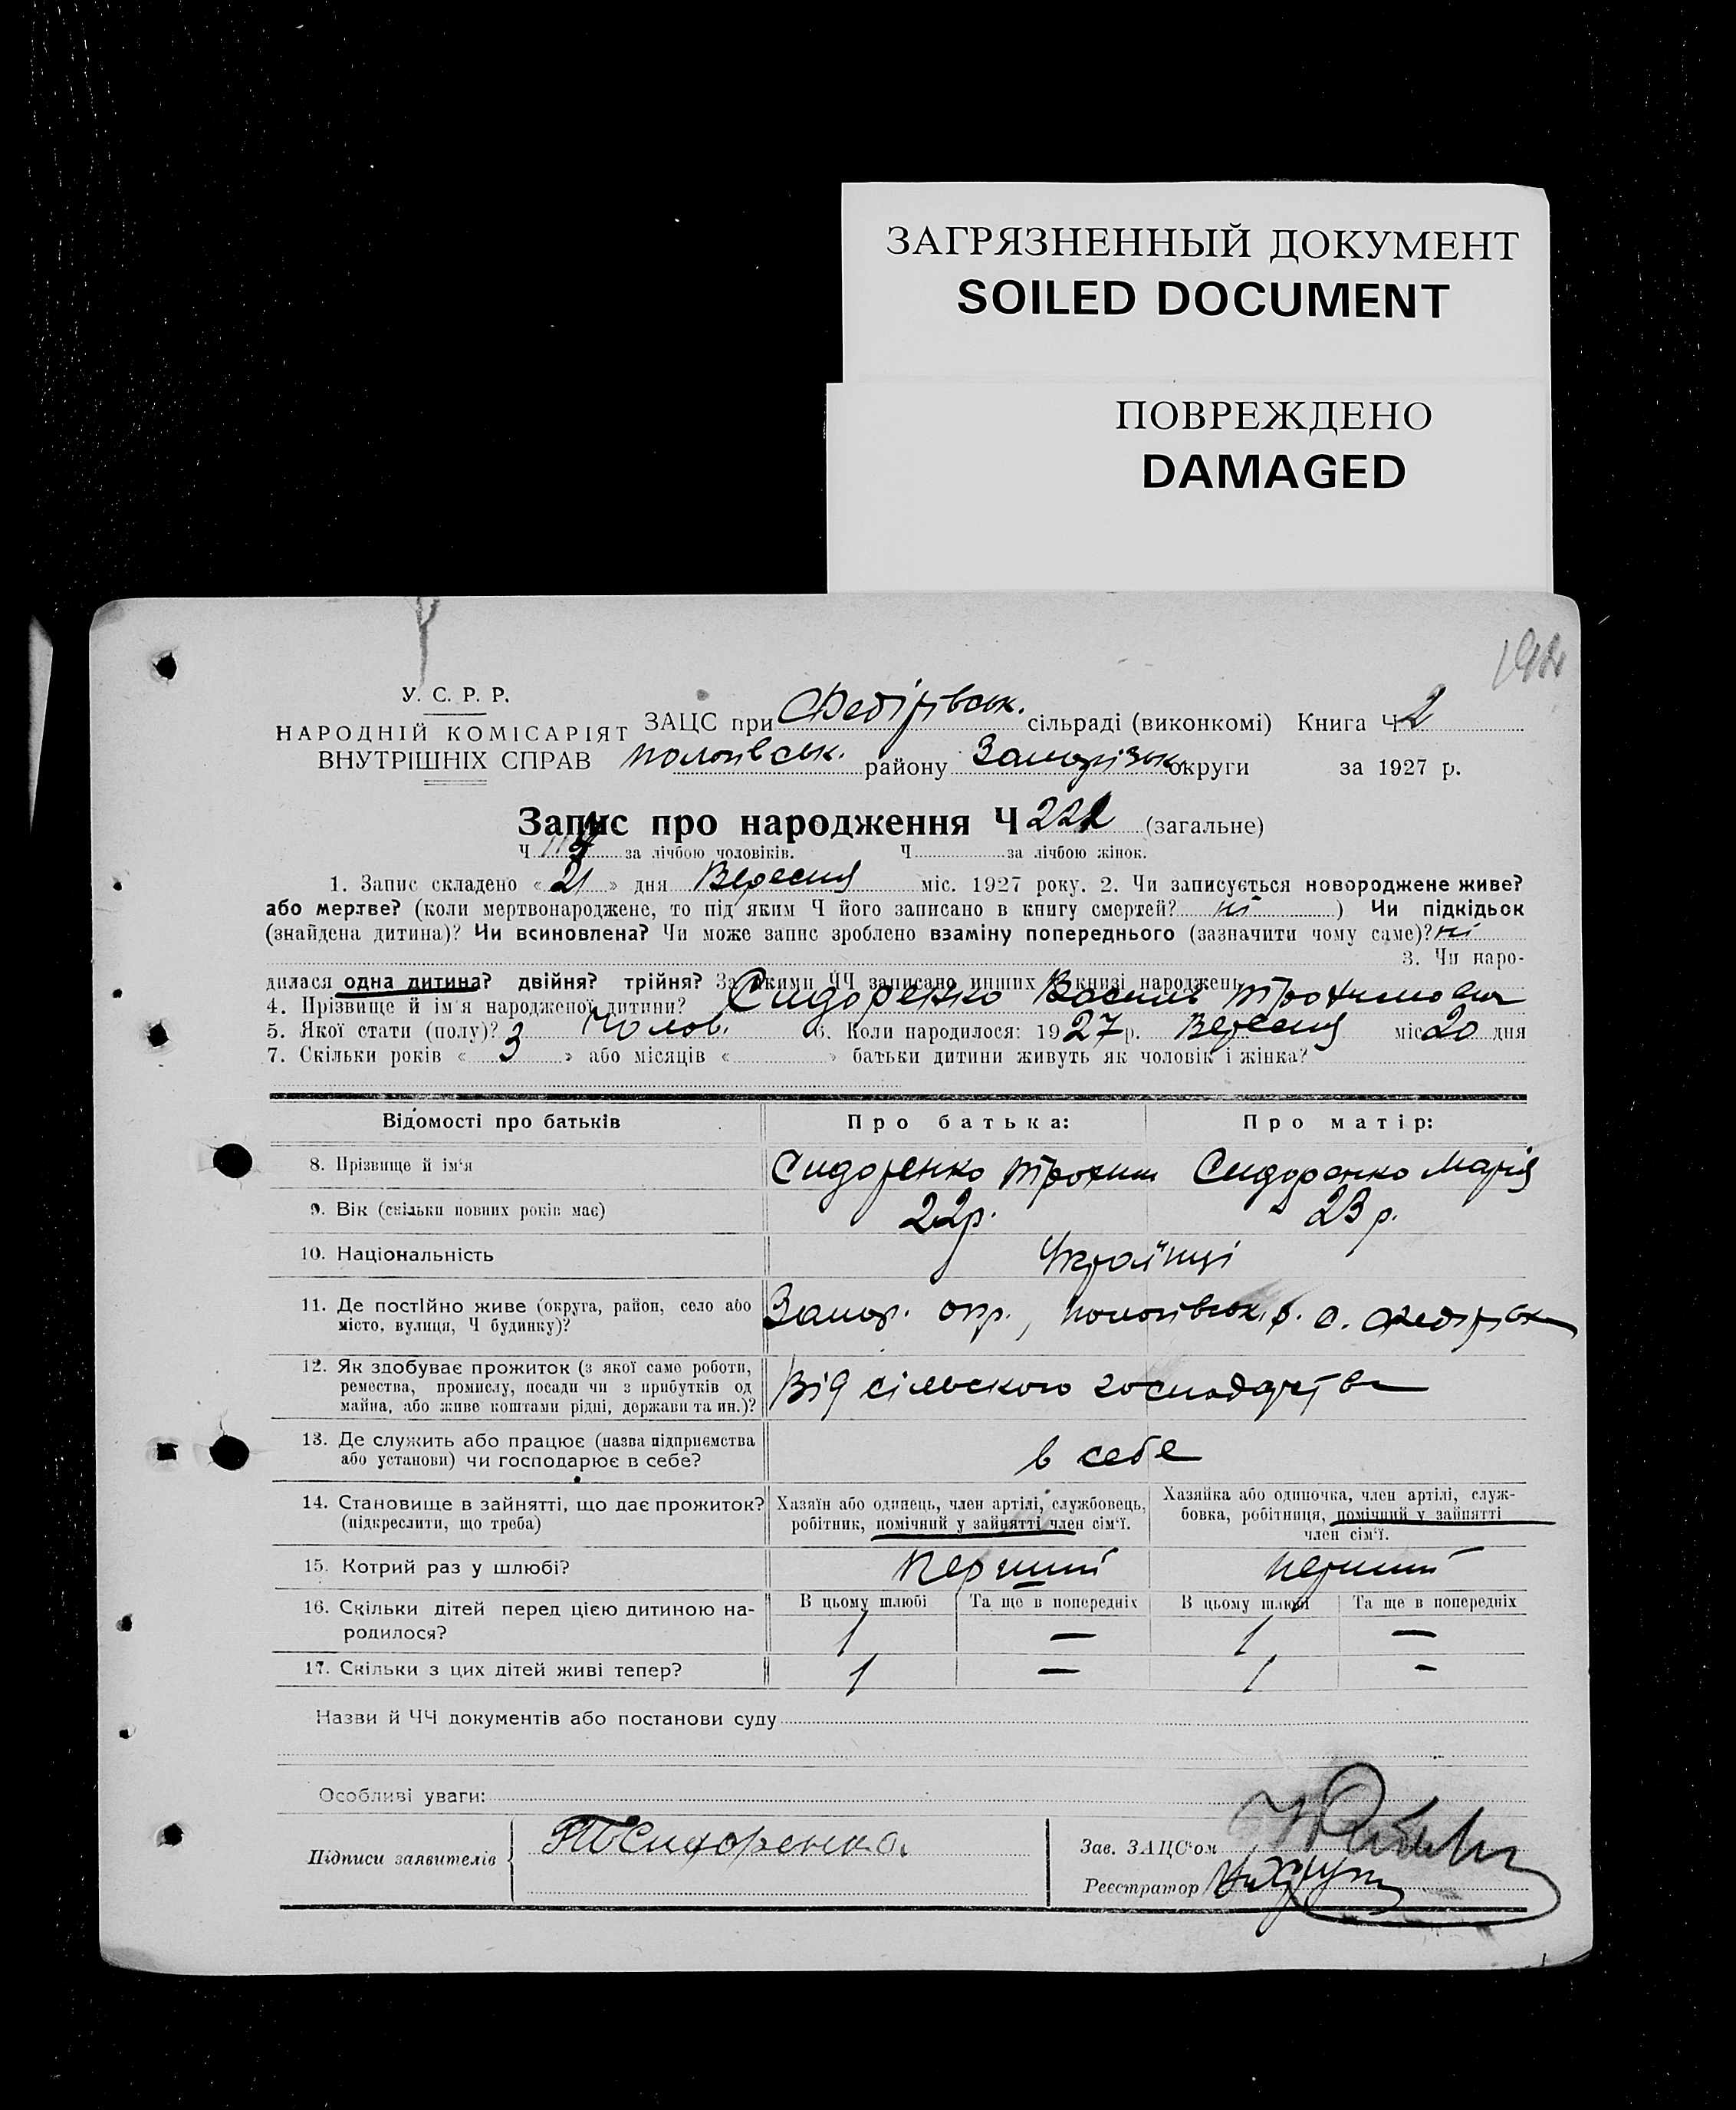 ЗАГРЯЗНЕННЫЙ ДОКУМЕНТ
SOILED DOCUMENT
ПОВРЕЖДЕНО
DAMAGED
У. С. Р. Р.
НАРОДНІЙ КОМІСАРІЯТ
ВНУТРІШНІХ СПРАВ
ЗАЦС при Федірівськ. сільраді (виконкомі) Книга Ч 2
Пологівськ. району Запорізьк. округи за 1927 р.
Запис про народження Ч 222 (загальне)
Ч 117 за лічбою чоловіків. Ч за лічбою жінок.
1. Запис складено « 21 » дня Вересня міс. 1927 року. 2. Чи записується новороджене живе?
або мертве? (коли мертвонароджене, то під яким Ч його записано в книгу смертей? ні ) Чи підкідьок
(знайдена дитина)? Чи всиновлена? Чи може запис зроблено взаміну попереднього (зазначити чому саме)? ні
3. Чи наро-
дилася одна дитина? двійня? трійня? За якими ЧЧ записано инших в книзі народжень
4. Прізвище й ім'я народженої дитини? Сидоренко Василь Трохимович
5. Якої стати (полу)? Чолов. 6. Коли народилося: 1927 р. Вересня міс 20 дня
7. Скільки років « 3 » або місяців « » батьки дитини живуть як чоловік і жінка?
Відомості про батьків Про батька: Про матір:
8. Прізвище й ім'я Сидоренко Трохим Сидоренко Марія
9. Вік (скільки повних років має) 22 р. 23 р.
10. Національність Українці
11. Де постійно живе (округа, район, село або
місто, вулиця, Ч будинку)? Запор. окр., Пологівськ. р. с. Федірівка
12. Як здобуває прожиток (з якої саме роботи,
ремества, промислу, посади чи з прибутків од
майна, або живе коштами рідні, держави та ин.)? Від сільського господарства
13. Де служить або працює (назва підприємства
або установи) чи господарює в себе? в себе
14. Становище в зайнятті, що дає прожиток?
(підкреслити, що треба)
Хазяїн або одинець, член артілі, службовець,
робітник, помічний у зайнятті член сім'ї.
Хазяйка або одиночка, член артілі, служ-
бовка, робітниця, помічний у зайнятті
член сім'ї.
15. Котрий раз у шлюбі? Перший перший
16. Скільки дітей перед цією дитиною на-
родилося?
В цьому шлюбі Та ще в попередніх В цьому шлюбі Та ще в попередніх
1 — 1 —
17. Скільки з цих дітей живі тепер? 1 — 1 -
Назви й ЧЧ документів або постанови суду
Особливі уваги:
Підписи заявителів Сидоренко
Зав. ЗАЦС'ом
Реєстратор